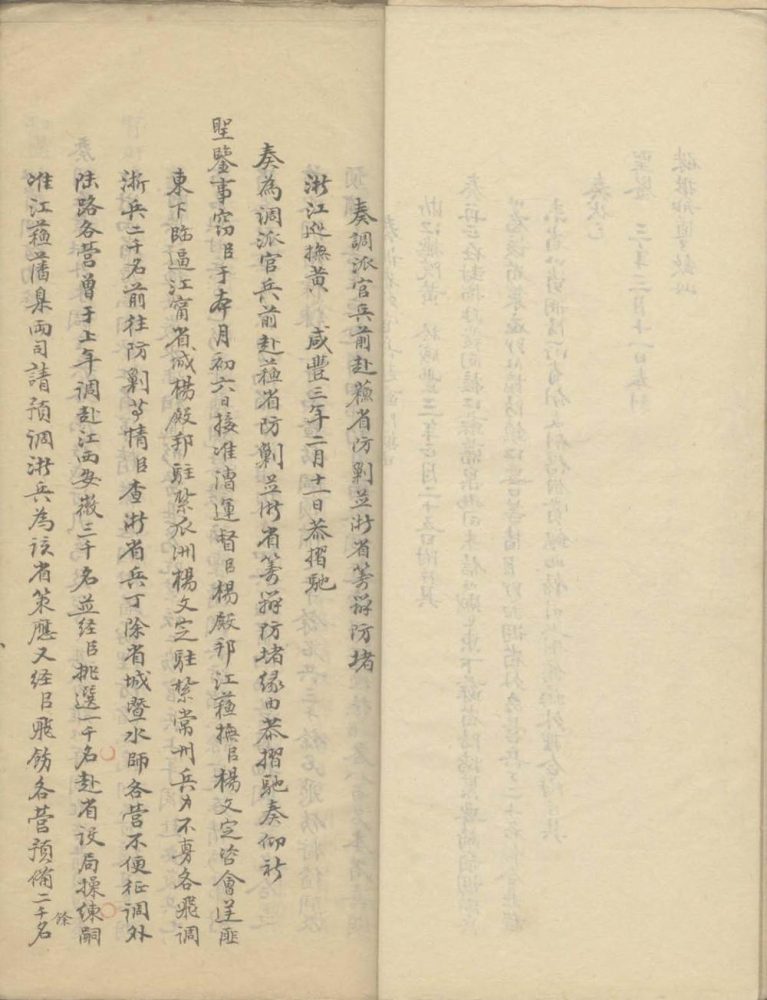 奏調派官兵前赴蘓省防剿並浙省筹辦防堵
浙江巡撫黄　咸豐三年二月十一日恭摺馳
奏為调派官兵前赴蘓省防剿並浙省筹辦防堵缘由恭摺馳奏仰祈
聖鑒事窃臣于本月初六日接准漕運督臣楊殿邦江蘓撫臣楊文定咨會逆匪
東下臨逼江甯省城楊殿邦駐紮瓜洲楊文定駐紮常州兵力不旉各飛调
浙兵二千名前往防剿等情臣查浙省兵丁除省城暨水師各营不便征调外
陆路各营曾于上年调赴江西安徽三千名並经臣挑選一千名赴省设局操練嗣
准江蘓藩臬兩司請預调浙兵為该省策應又经臣飛飭各营預俻二千名
餘